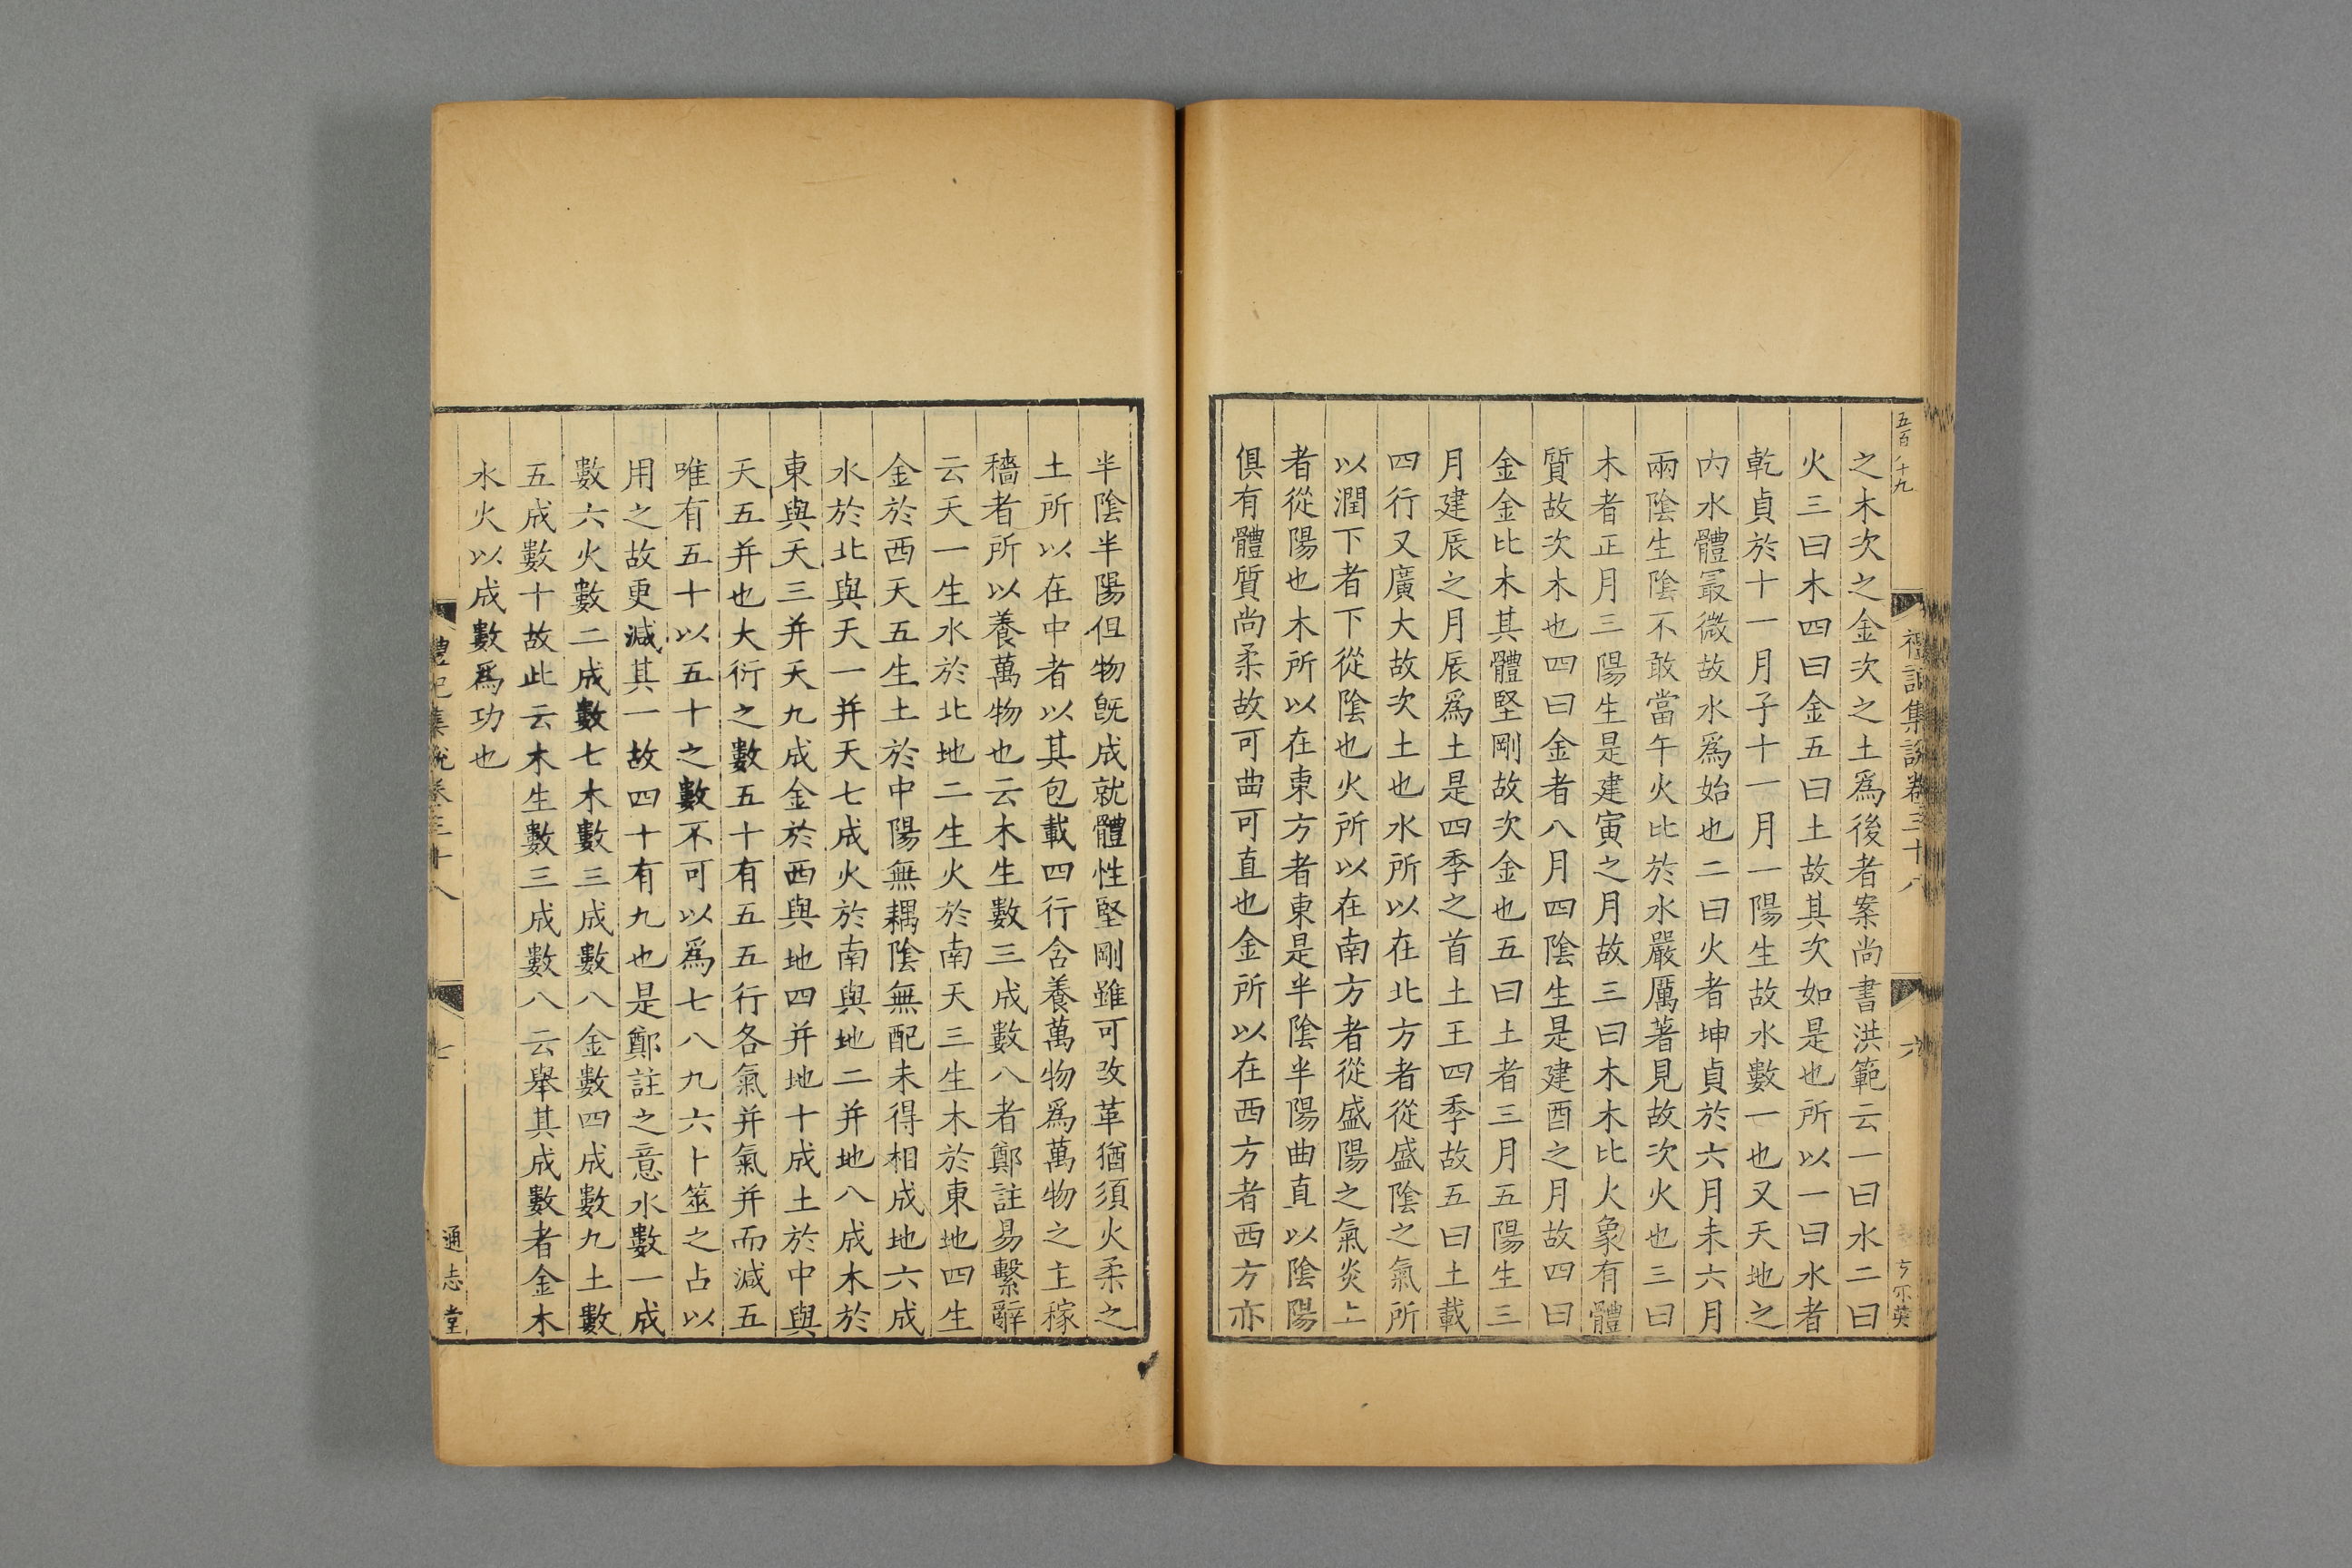 禮記集說卷三十八
六
之木次之金次之土爲後者案尚書洪範云一曰水二曰
火三曰木四曰金五曰土故其次如是也所以一曰水者
乾貞於十一月子十一月一陽生故水數一也又天地之
內水體㝡微故水爲始也二曰火者坤貞於六月未六月
兩陰生陰不敢當午火比於水嚴厲著見故次火也三曰
木者正月三陽生是建寅之月故三曰木木比火象有體
質故次木也四曰金者八月四陰生是建酉之月故四曰
金金比木其體堅剛故次金也五曰土者三月五陽生三
月建辰之月辰爲土是四季之首土王四季故五曰土載
四行又廣大故次土也水所以在北方者從盛陰之氣所
以潤下者下從陰也火所以在南方者從盛陽之氣炎上
者從陽也木所以在東方者東是半陰半陽曲直以陰陽
俱有體質尚柔故可曲可直也金所以在西方者西方亦
半陰半陽但物旣成就體性堅剛雖可改革猶須火柔之
土所以在中者以其包載四行含養萬物爲萬物之主稼
穡者所以養萬物也云木生數三成數八者鄭註易繫辭
云天一生水於北地二生火於南天三生木於東地四生
金於西天五生土於中陽無耦陰無配未得相成地六成
水於北與天一并天七成火於南與地二并地八成木於
東與天三并天九成金於西與地四并地十成土於中與
天五并也大衍之數五十有五五行各氣并氣并而減五
唯有五十以五十之數不可以爲七八九六卜筮之占以
用之故更減其一故四十有九也是鄭註之意水數一成
數六火數二成數七木數三成數八金數四成數九土數
五成數十故此云木生數三成數八云舉其成數者金木
水火以成數爲功也
禮記集說卷三十八
七
通志堂